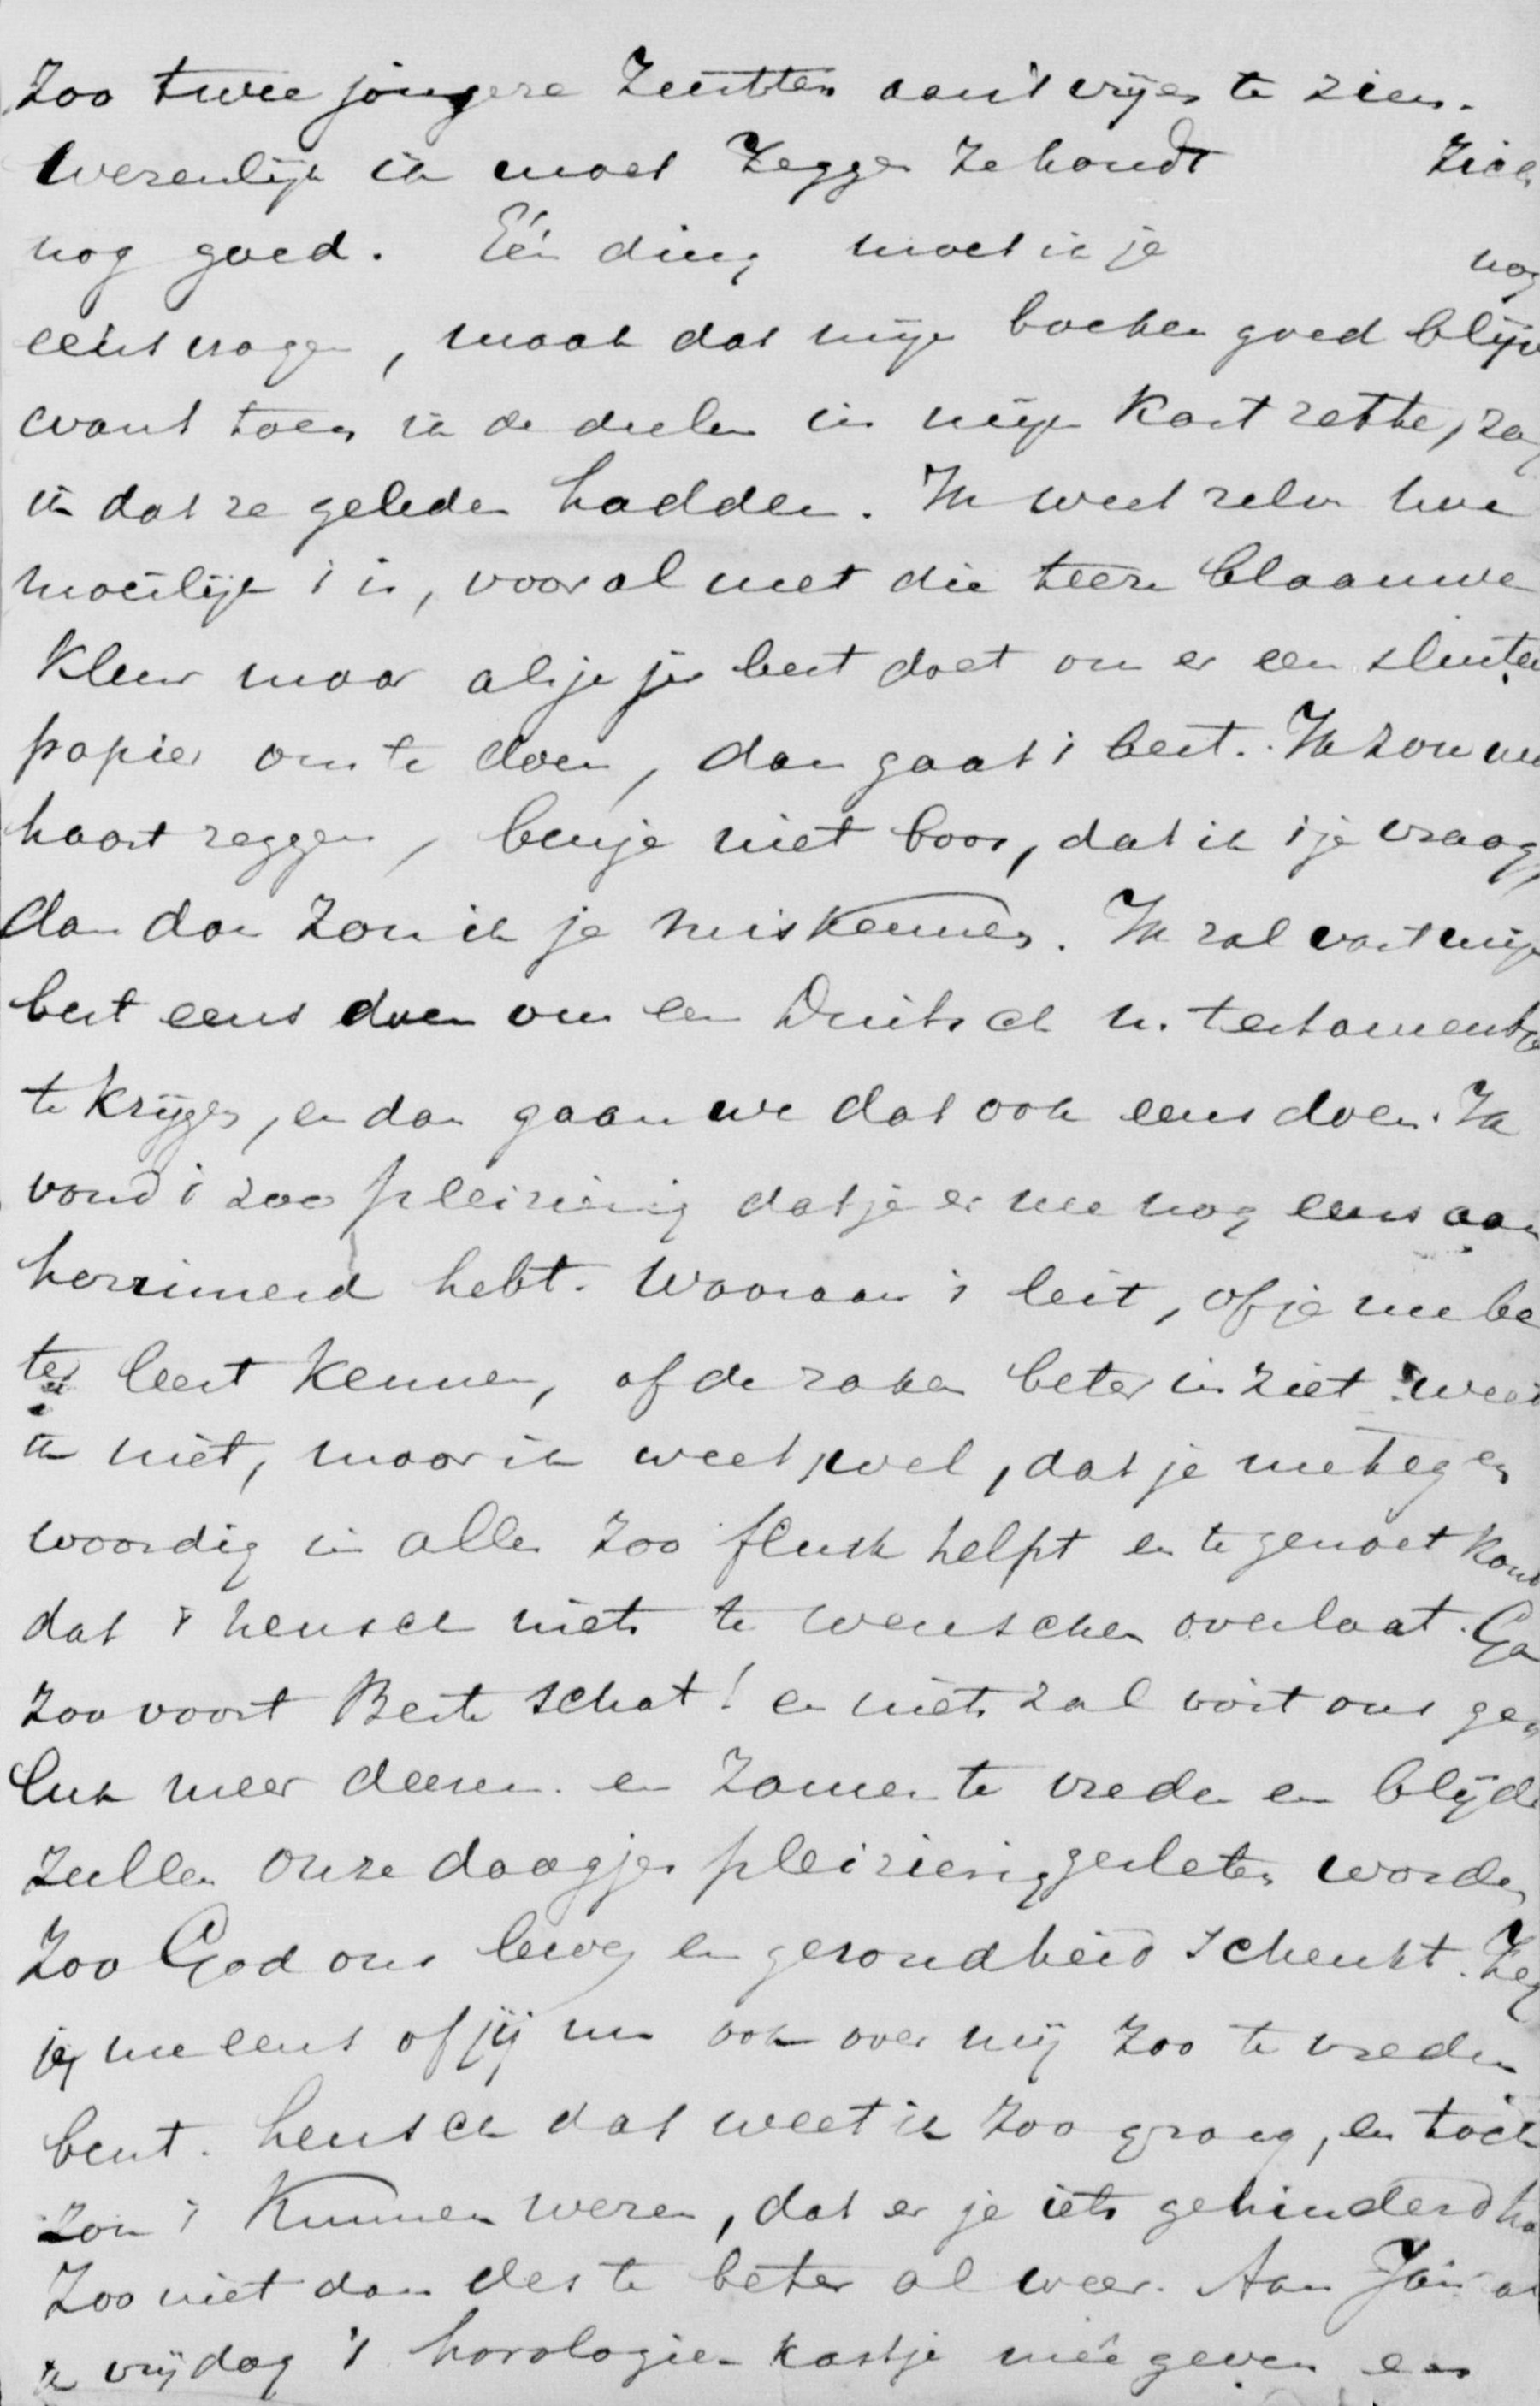 zoo twee jongere zusters aan 't vrijen te zien.
Wezenlijk ik moet zeggen ze houdt zich
nog goed. Eén ding moet ik je nog
eens vragen, maak dat mijn boeken goed blijv
want toen ik de deelen in mijn kast zette, zag
ik dat ze geleden hadden. Ik weet zelve hoe
moeilijk 't is, vooral met die teere blaauwe
kleur maar als je je best doet om er een sluiter
papier om te doen, dan gaat 't best. Ik zou nu
haast zeggen, ben je niet boos, dat ik 't je vraag,
dan dan zou ik je miskennen. Ik zal vast mijn
best eens doen om een Duitsch n. testamentje
te krijgen, en dan gaan we dat ook eens doen. Ik
vond 't zoo pleizierig dat je er me nog eens aan
herrinnerd hebt. Waaraan 't leit, of je me be
ter leert kennen, of de zaken beter in ziet weet
ik niet, maar ik weet wel, dat je me tegen
woordig in alles zoo flink helpt en te gemoet komt
dat 't heusch niets te wenschen overlaat. Ga
zoo voort Beste schat! en niets zal ooit ons ge
luk meer deeren en zamen te vreden en blijde
zullen onze daagjes pleizierig gesleten worden
zoo God ons leven en gezondheid schenkt. Zeg
jij me eens of jij nu ook over mij zoo te vreden
bent. heusch dat weet ik zoo graag, en toch
zou 't kunnen wezen, dat er je iets gehinderd ha
Zoo niet dan des te beter al weer. Aan Jan
ik vrijdag 't horologie-kastje mêe geven en